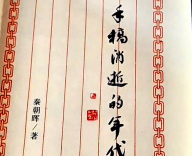 手稿消逝的年代
秦朝晖/著